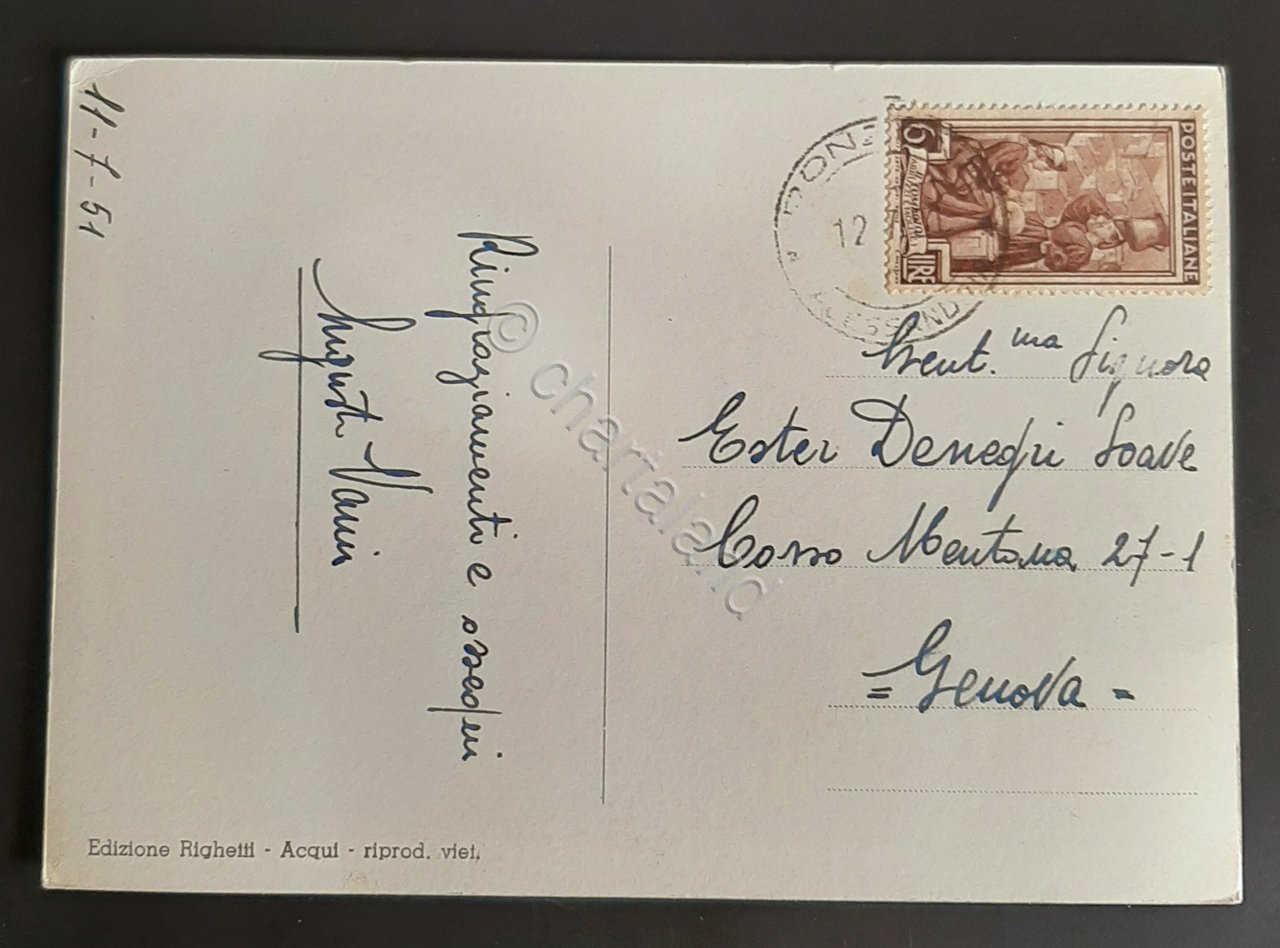 11-7-51
Ringraziamenti e ossequi
Vanni
Edizione Righetti - Acqui - riprod. viet.
PONZ
12
ALESSAND
6
LIRE
POSTE ITALIANE
Gent.ma Signora
Ester Denegri Soave
Corso Mentana 27-1
= Genova =
© chartaland